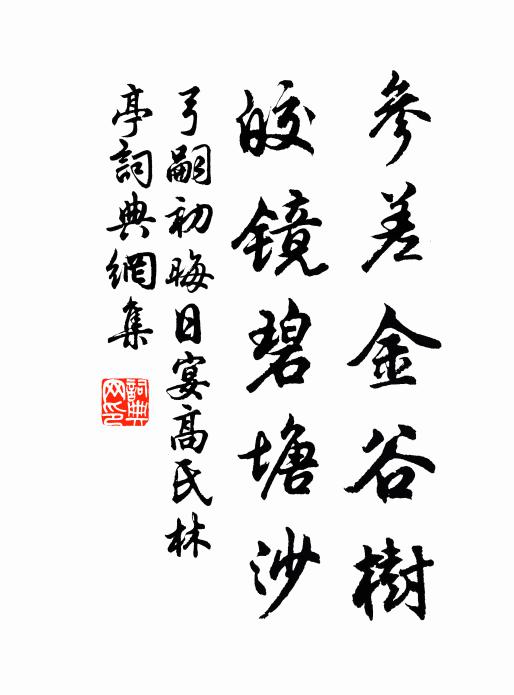 參差金谷樹
皎鏡碧塘沙
弓嗣初晦日宴高氏林
亭詞典網集
詞典网印